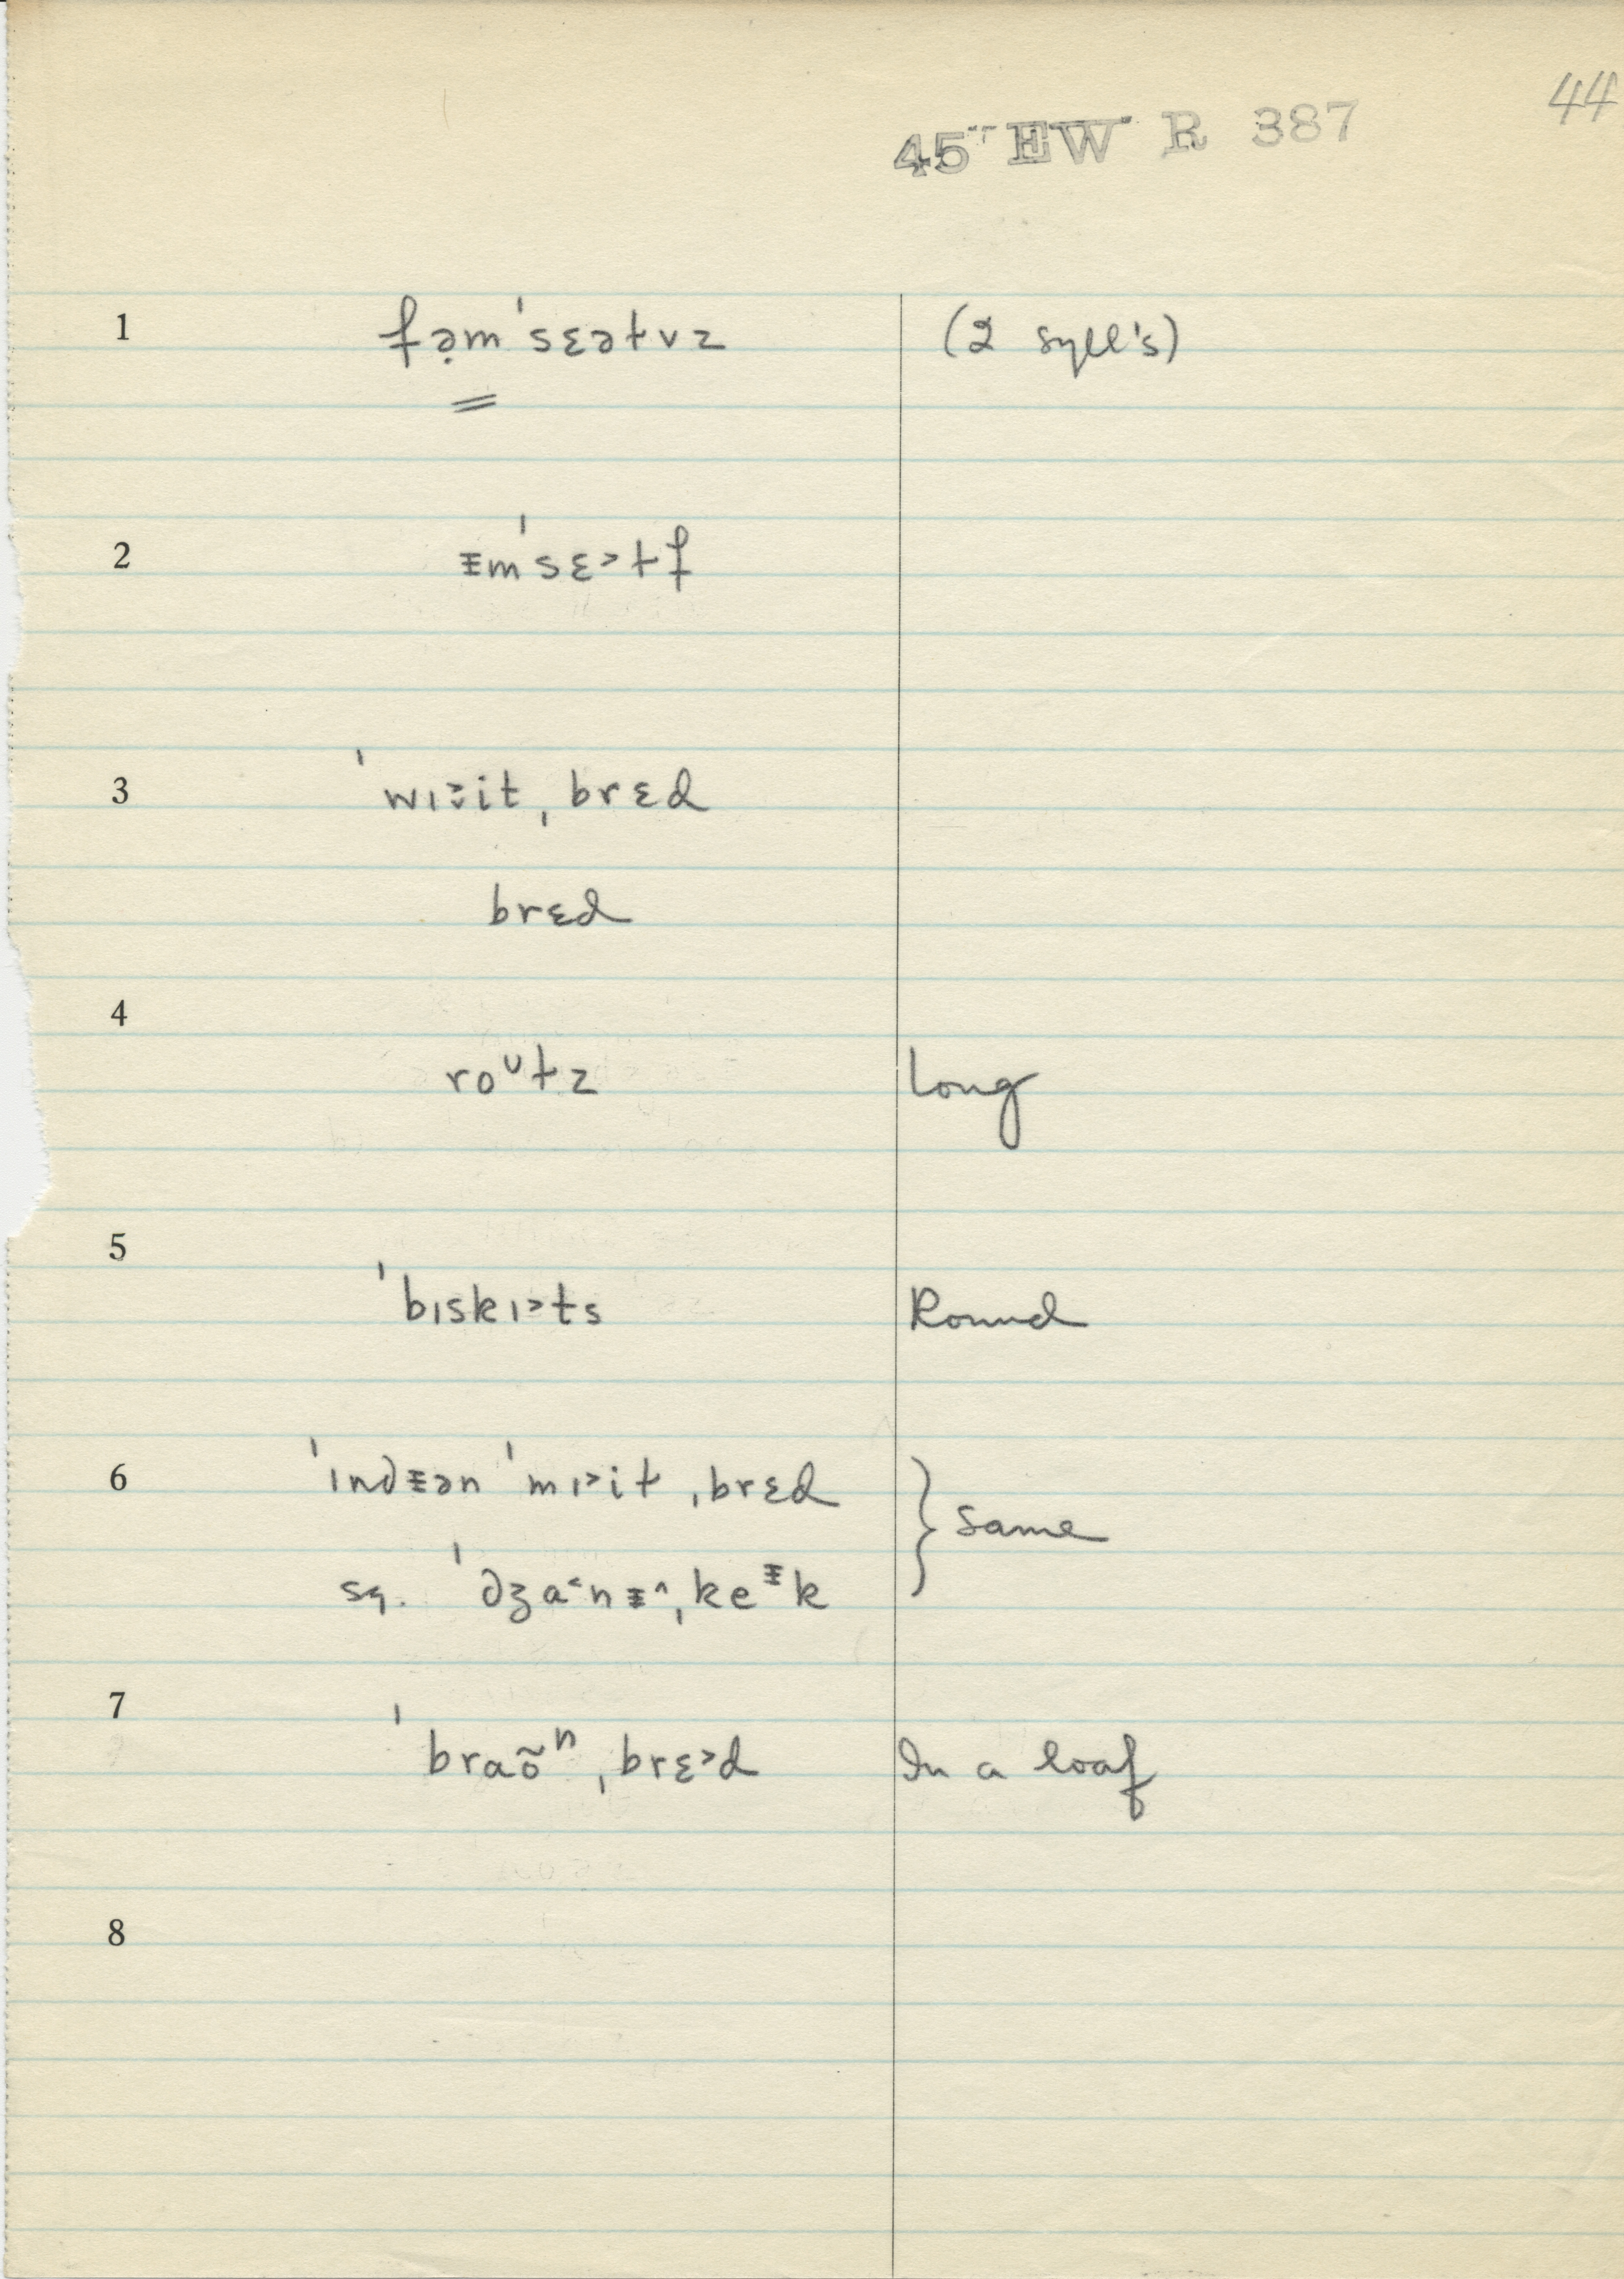 44
45 EW R 387
1 fə̣m ˈsɛəɫvz (2 syll's)
2 ᵻm ˈsɛ˃ɫf
3 ˈwɪ˃̬it ˌbrɛd
brɛd
4
roᶷɫz Long
5
ˈbɪskɪ˃ts Round
6 ˈɪndᵻən ˈmɪ˃iɫ ˌbrɛd } Same
sq. ˈdʒa˂nᵻ˄ ˌkeᵻk
7
ˈbraõⁿ ˌbrɛ˃d In a loaf
8